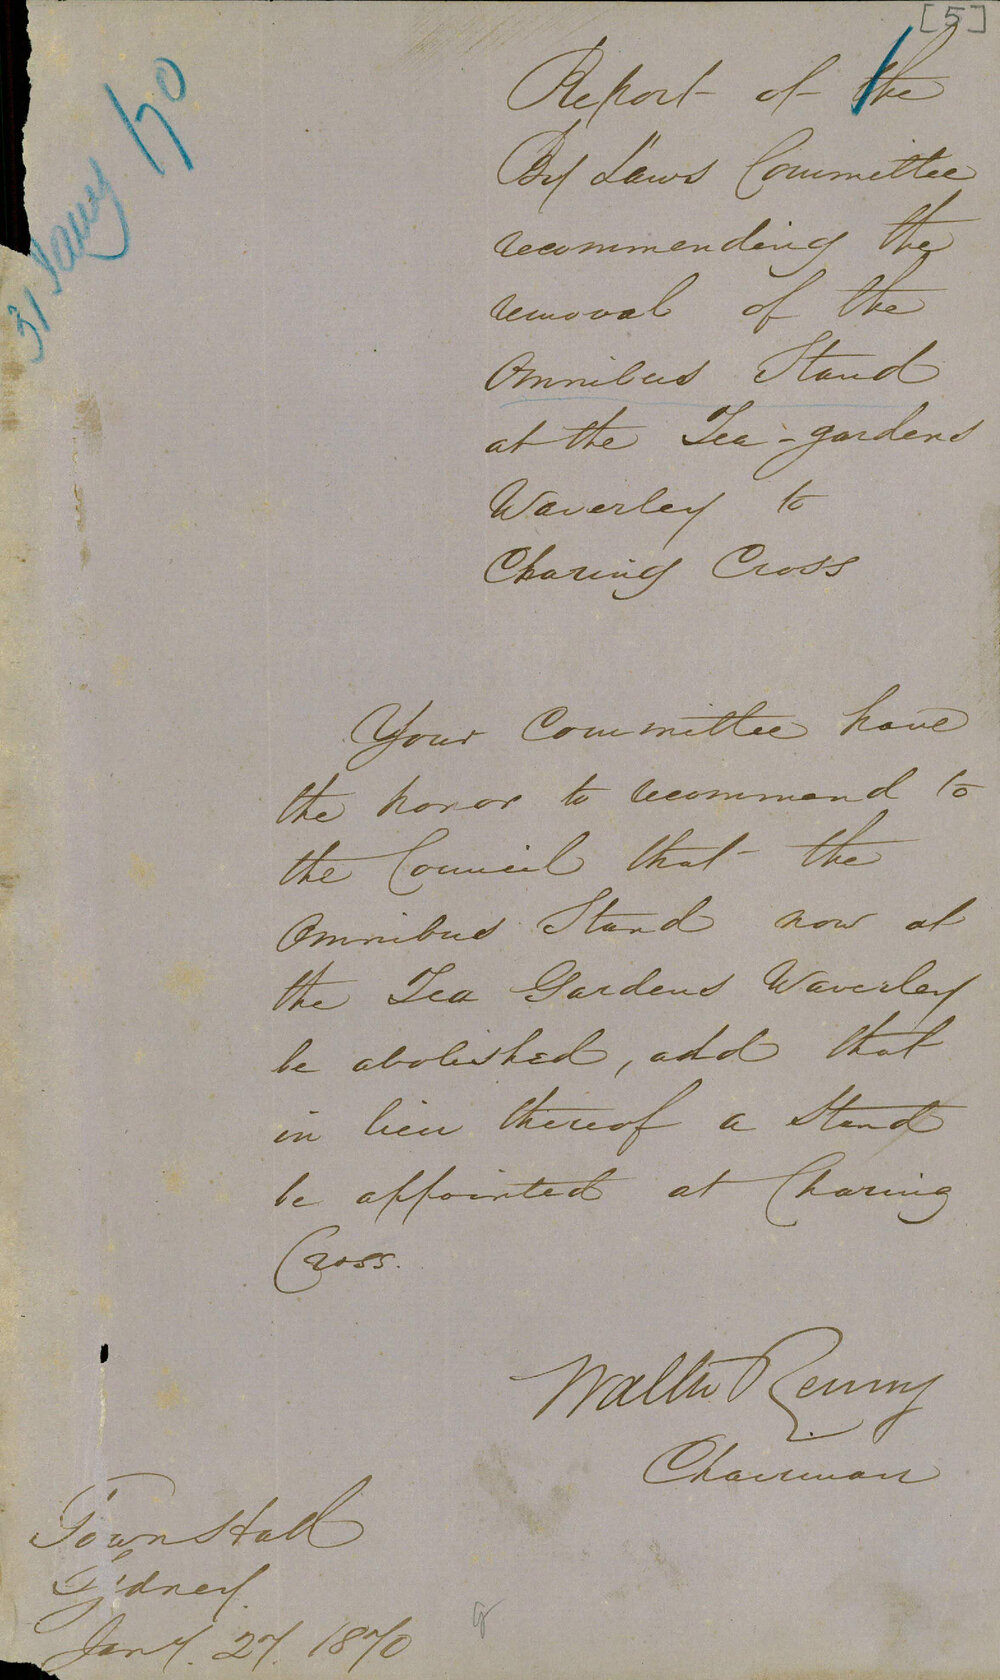 [5]
31 Jany /70
Report of the
By Laws Committee
recommending the
removal of the
Omnibus Stand
at the Tea-gardens
Waverley to
Charing Cross
Your Committee have
the honor to recommend to
the Council that the
Omnibus Stand now at
the Tea Gardens Waverley
be abolished, add that
in lieu thereof a Stand
be appointed at Charing
Cross.
Walter Renny
Chairman
Town Hall
Sydney.
Jany. 27. 1870